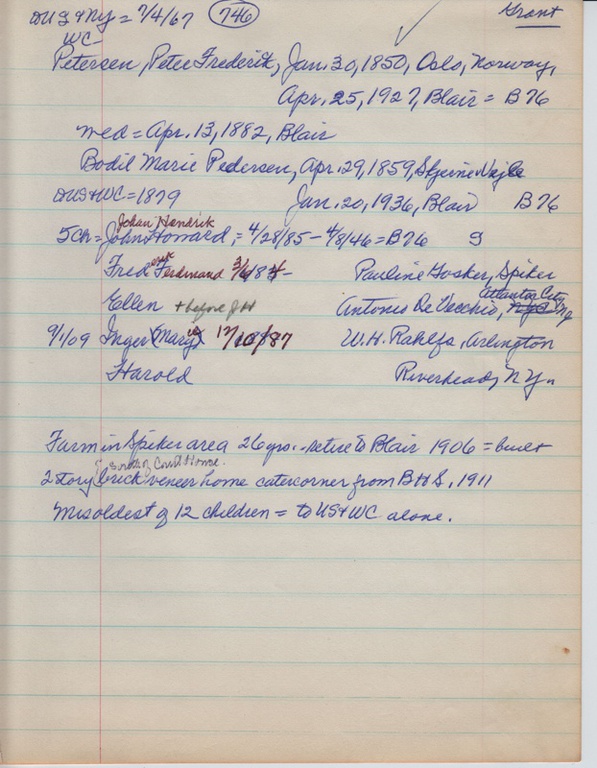 DUS & NY = 7/4/67 746 Grant
WC
Petersen, Peter Frederik, Jan. 30, 1850, Oslo, Norway,
Apr. 25, 1927, Blair = B76
med = Apr. 13, 1882, Blair
Bodil Marie Pedersen, Apr. 29, 1859, Vejle
DUS&WC=1879 Jan. 20, 1936, Blair B76
Johan Hendrick
5ch = John Howard, = 4/28/85 - 4/8/46 = B76 9
Frederick Ferdinand 3/6/84 - Pauline Hosker, Spiker
Atlantic City
Ellen + before JH Antonio De Vecchio, NYC NJ
9/1/09 Inger (Mary) 12/10/87 W.H. Rahlfs, Arlington
Harold Riverhead, N.Y.
Farm in Spiker area 26 yrs. - retire to Blair 1906 = built
South of Court House.
2 story brick veneer home catercorner from BHS, 1911
M is oldest of 12 children = to US & WC alone.